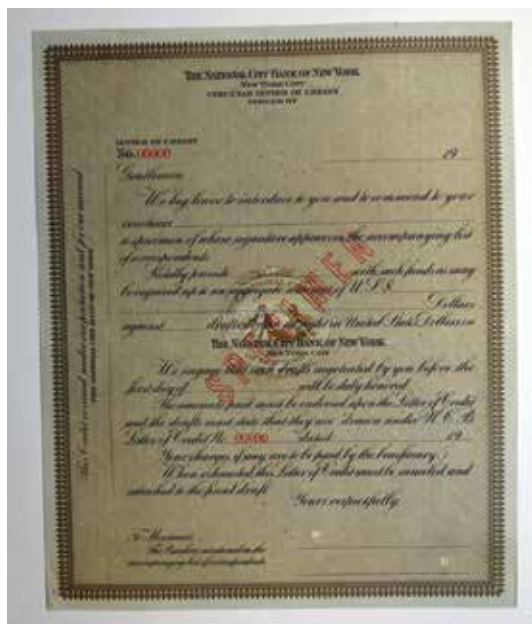 THE NATIONAL CITY BANK OF NEW YORK
NEW YORK CITY
CIRCULAR LETTER OF CREDIT
ISSUED BY
LETTER OF CREDIT
No. 00000
19
Gentlemen
We beg leave to introduce to you and to commend to your
courtesies
a specimen of whose signature appears in the accompanying list
of correspondents.
Kindly provide with such funds as may
be required up to an aggregate amount of U.S.$
Dollars
against drafts at sight in United States Dollars on
THE NATIONAL CITY BANK OF NEW YORK
NEW YORK CITY
SPECIMEN
We engage that such drafts negotiated by you before the
first day of will be duly honored
The amounts paid must be endorsed upon this Letter of Credit
and the drafts must state that they are drawn under N.C.B.
Letter of Credit No. 00000 dated 19
Your charges if any are to be paid by the beneficiary.
When exhausted this Letter of Credit must be cancelled and
attached to the final draft.
Yours respectfully
To Messieurs
The Bankers mentioned in the
accompanying list of correspondents
This Credit is issued under